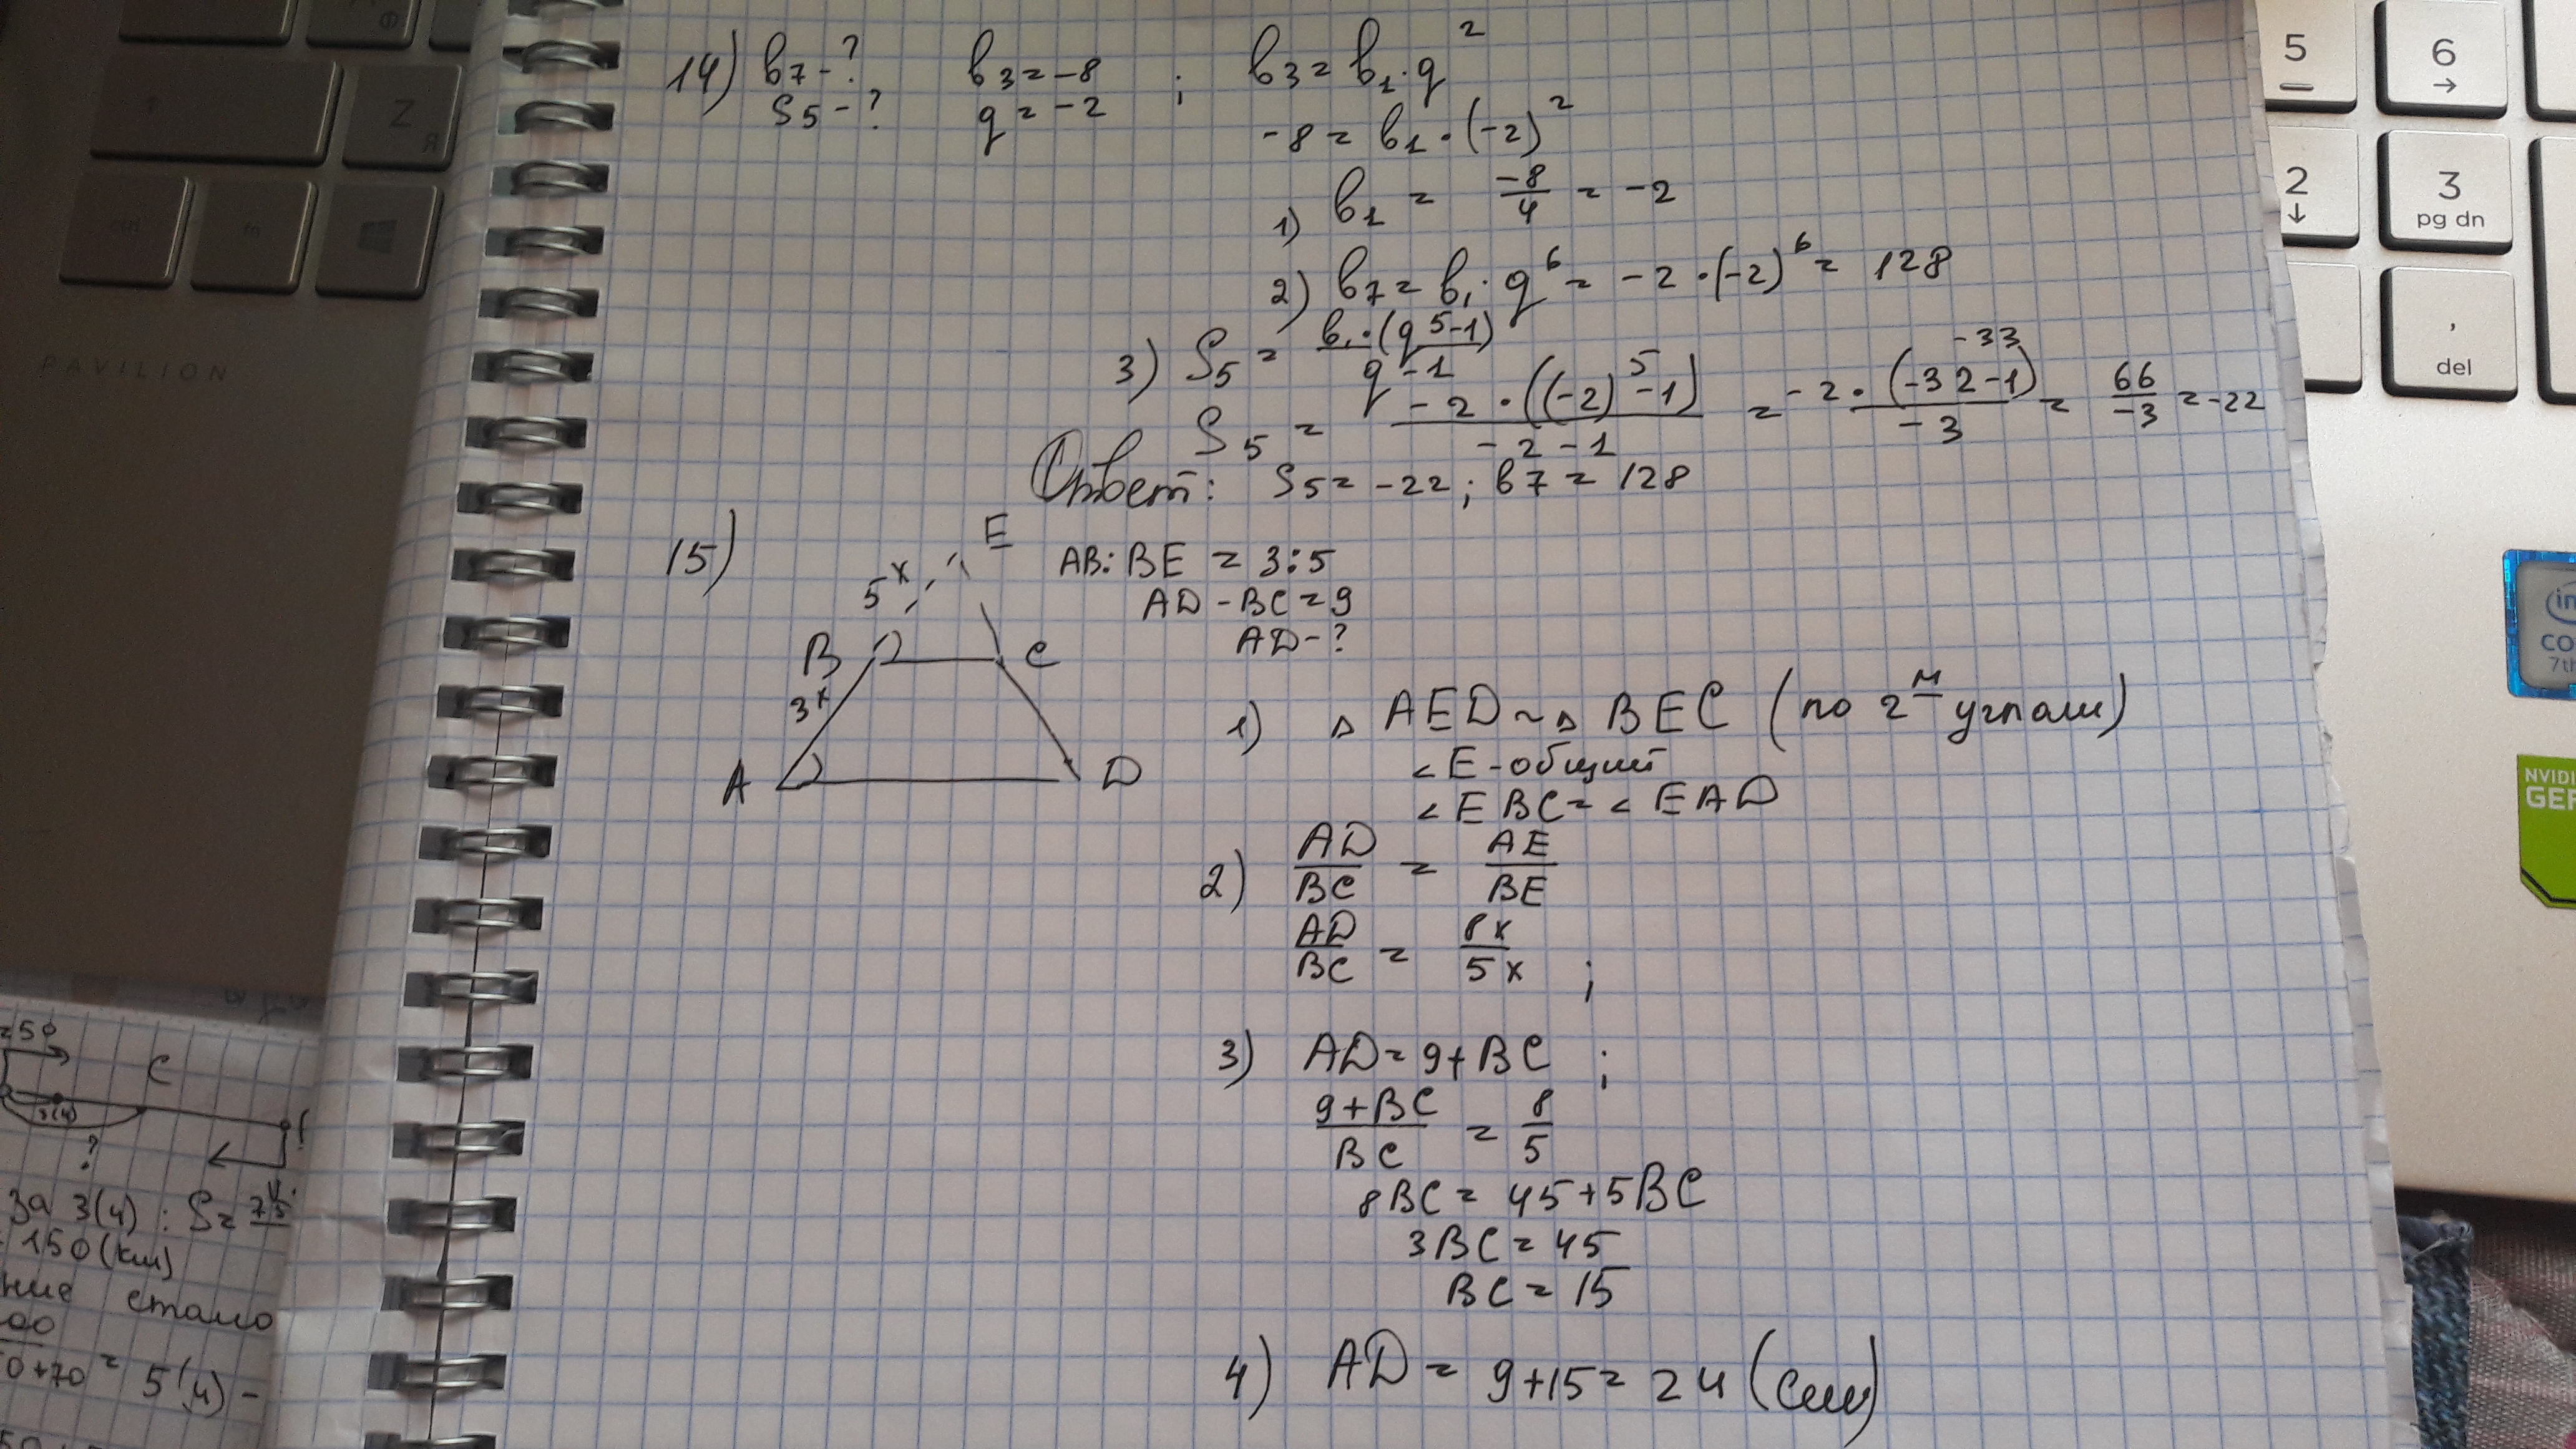 14) b7 - ?   b3 = -8 ;   b3 = b1 · q²
S5 - ?   q = -2
-8 = b1 · (-2)²
1) b1 = -8/4 = -2
2) b7 = b1 · q⁶ = -2 · (-2)⁶ = 128
3) S5 = b1 · (q⁵-1) / q-1
-33
S5 = -2 · ((-2)⁵-1) / -2-1 = -2 · (-32-1) / -3 = 66/-3 = -22
Ответ: S5 = -22; b7 = 128
15)
E
5x
B
C
3x
A
D
AB : BE = 3 : 5
AD - BC = 9
AD - ?
1) △ AED ~ △ BEC (по 2м углам)
∠E - общий
∠EBC = ∠EAD
2) AD/BC = AE/BE
AD/BC = 8x/5x ;
3) AD = 9 + BC ;
9+BC/BC = 8/5
8BC = 45 + 5BC
3BC = 45
BC = 15
4) AD = 9 + 15 = 24 (см)
=50
C
3(ч)
?
за 3(ч) : S = 75·
150 (км)
ние стало
00
0+70 = 5(ч) -
PAVILION
Z
Я
ctrl
fn
5
6
→
2
↓
3
pg dn
,
del
in
CO
7th
NVIDI
GEF